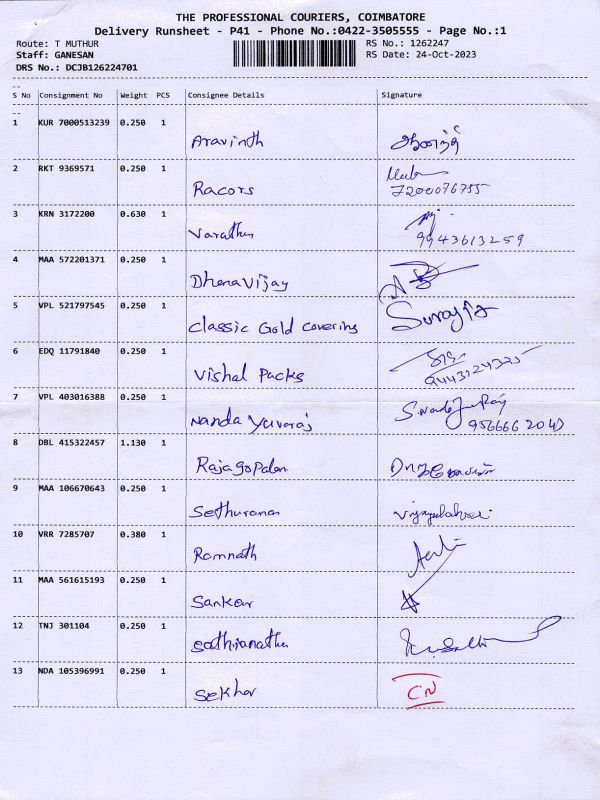 THE PROFESSIONAL COURIERS, COIMBATORE
Delivery Runsheet - P41 - Phone No.:0422-3505555 - Page No.:1
Route: T MUTHUR RS No.: 1262247
Staff: GANESAN RS Date: 24-Oct-2023
DRS No.: DCJB126224701
S No Consignment No Weight PCS Consignee Details Signature
1 KUR 7000513239 0.250 1 Aravinth
2 RKT 9369571 0.250 1 Racors
7200076755
3 KRN 3172200 0.630 1 Varathan
9943613259
4 MAA 572201371 0.250 1 Dhanavijay
5 VPL 521797545 0.250 1 Classic Gold Covering
6 EDQ 11791840 0.250 1 Vishal Packs
9443124325
7 VPL 403016388 0.250 1 Nanda Yuvaraj
8 DBL 415322457 1.130 1 Rajagopalan
9 MAA 106670643 0.250 1 Sethuraman
10 VRR 7285707 0.380 1 Ramnath
11 MAA 561615193 0.250 1 Sankar
12 TNJ 301104 0.250 1
13 NDA 105396991 0.250 1 Sekhar CN